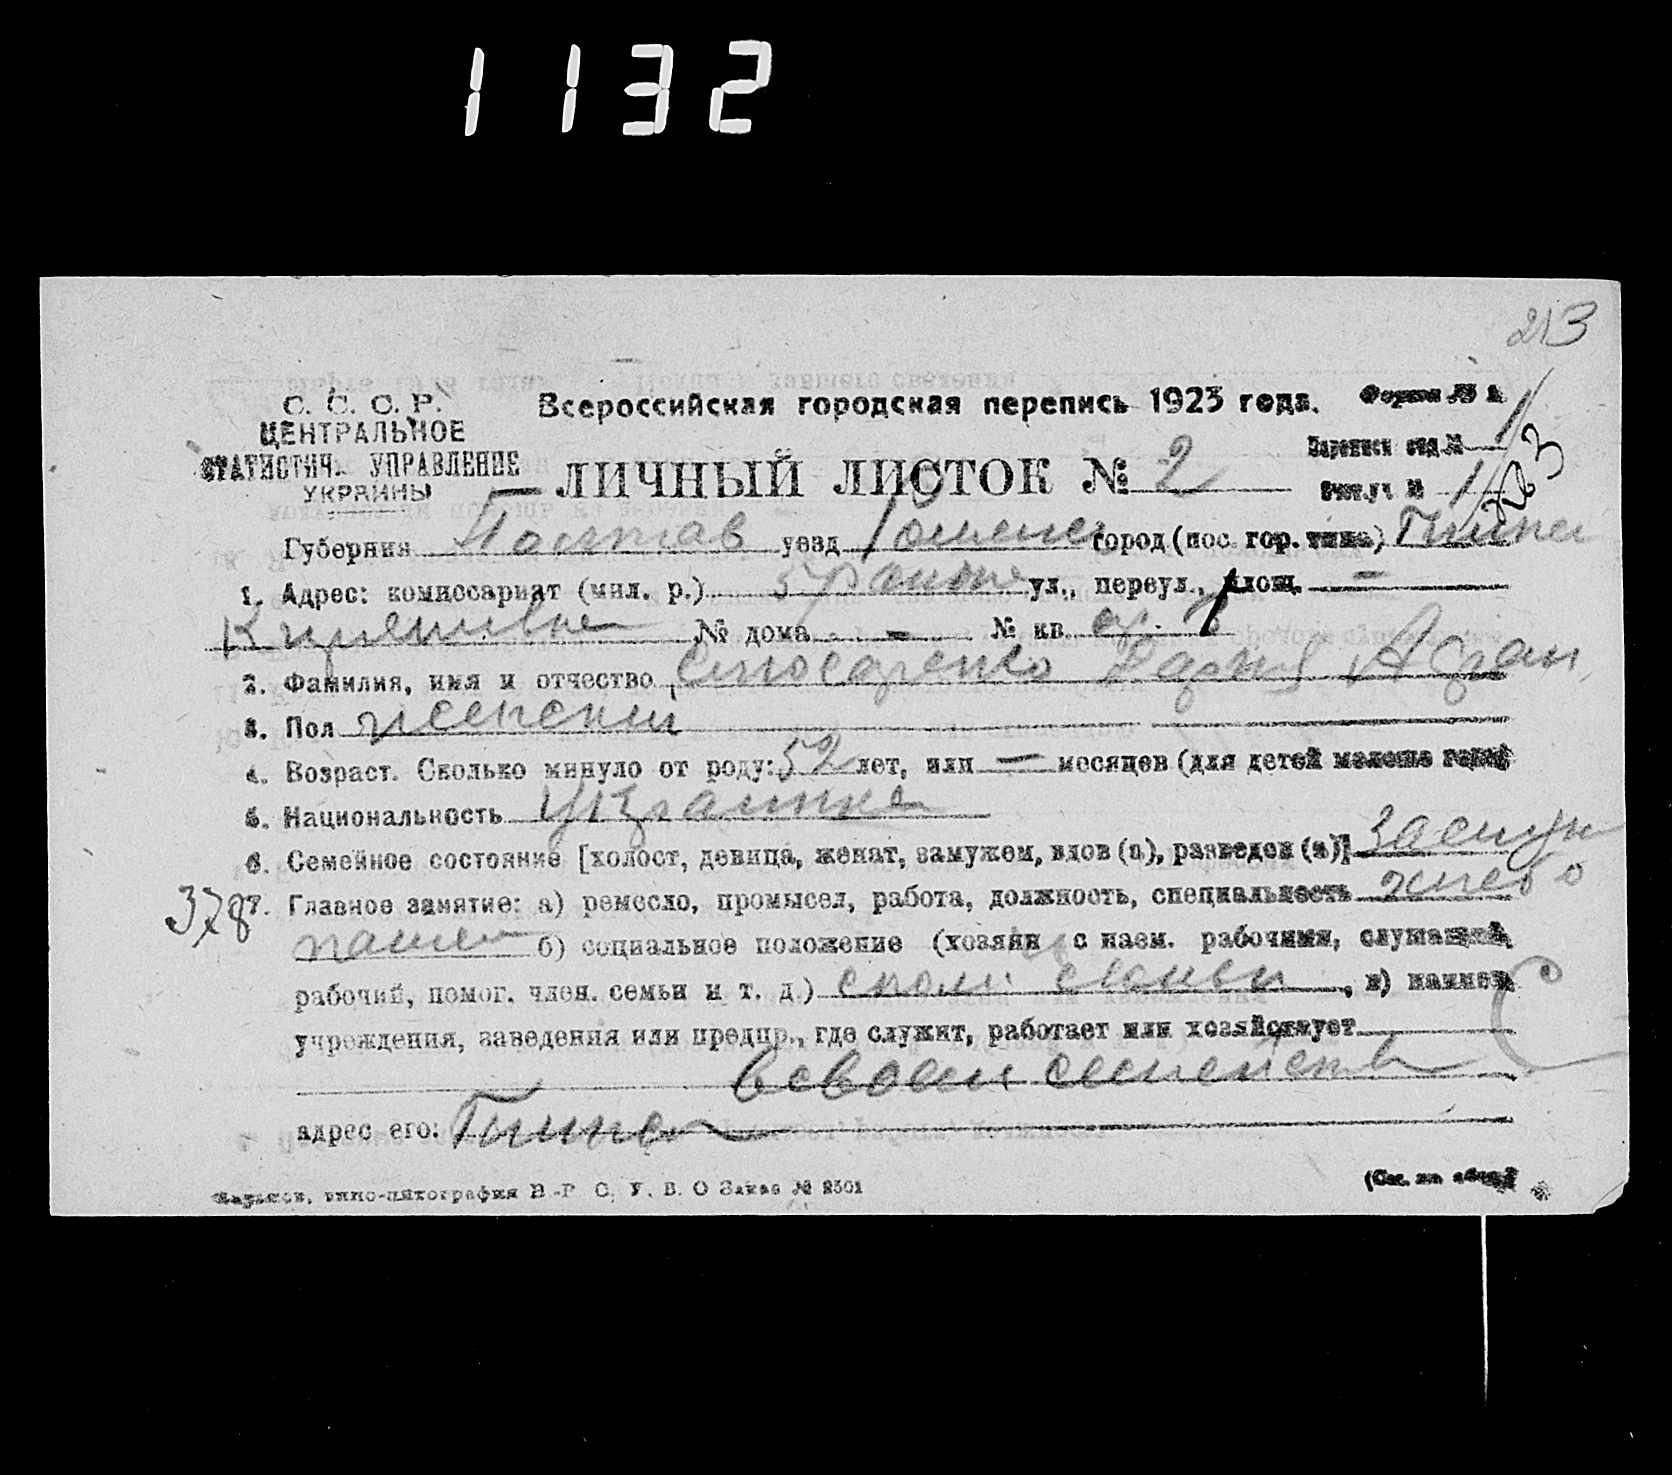 1132
213
С. С. С. Р.
ЦЕНТРАЛЬНОЕ
СТАТИСТИЧ. УПРАВЛЕНИЕ
УКРАИНЫ
Всероссийская городская перепись 1923 года.
Форма № 1
ЛИЧНЫЙ ЛИСТОК № 2
Губерния Полтав уезд Роменс город (пос. гор. типа) Глинск
1. Адрес: комиссариат (мил. р.) 5 район ул., переул., площ. —
№ дома — № кв.
2. Фамилия, имя и отчество Дария
3. Пол женский
4. Возраст. Сколько минуло от роду: 52 лет, или — месяцев (для детей моложе года)
5. Национальность Украинка
6. Семейное состояние [холост, девица, женат, замужем, вдов (а), разведен (а)] замуж
378
7. Главное занятие: а) ремесло, промысел, работа, должность, специальность хлебо
пашец б) социальное положение (хозяин с наем. рабочими, служащий,
рабочий, помог. член. семьи и т. д.) семьи, в) наимен.
учреждения, заведения или предпр., где служит, работает или хозяйствует
в своем семействе
адрес его: Глинск
Харьков, типо-литография В. Р. С. У. В. О Заказ № 2501
(См. на обор.)